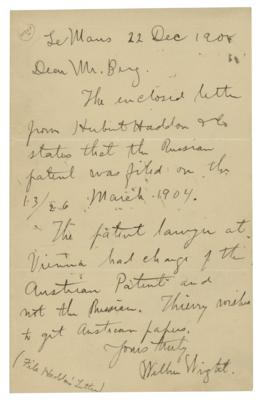 Le Mans 22 Dec 1908
Dear Mr. Berg.
The enclosed letter
from Hubert Haddon & Co
states that the Russian
patent was filed on the
13/26 March 1904.
The patent lawyer at
Vienna had charge of the
Austrian Patent and
not the Russian. Thierry wishes
to get Austrian papers.
Yours truly
Wilbur Wright.
(File Haddon Letter)